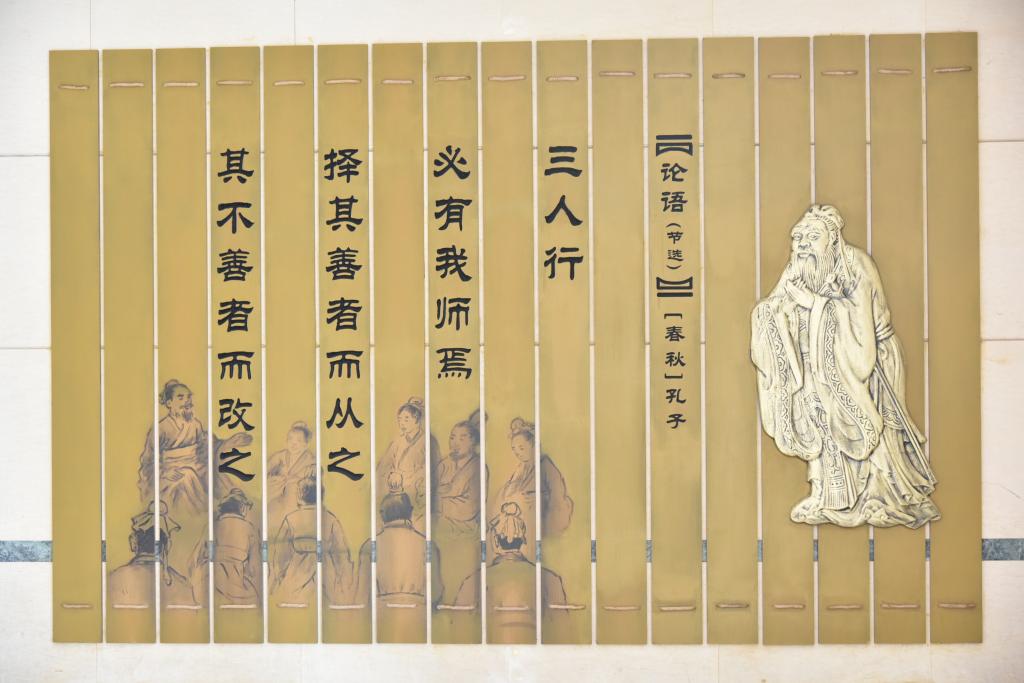 【论语（节选）】［春秋］孔子
三人行
必有我师焉
择其善者而从之
其不善者而改之